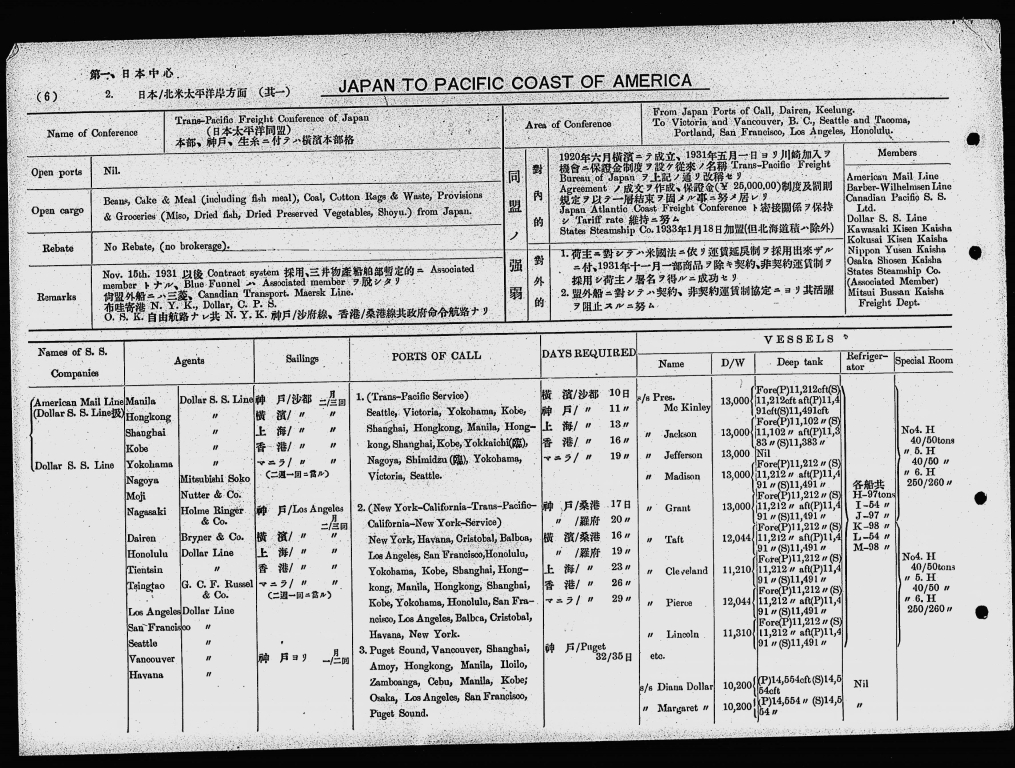 第一、日本中心
(6)
2. 日本/北米太平洋岸方面 (其一)
JAPAN TO PACIFIC COAST OF AMERICA
Name of Conference
Trans-Pacific Freight Conference of Japan
(日本太平洋同盟)
本部、神戸、生糸ニ付テハ横濱本部格
Area of Conference
From Japan Ports of Call, Dairen, Keelung.
To Victoria and Vancouver, B. C., Seattle and Tacoma,
Portland, San Francisco, Los Angeles, Honolulu.
Open ports
Nil.
Open cargo
Beans, Cake & Meal (including fish meal), Coal, Cotton Rags & Waste, Provisions
& Groceries (Miso, Dried fish, Dried Preserved Vegetables, Shoyu.) from Japan.
Rebate
No Rebate, (no brokerage).
Remarks
Nov. 15th. 1931 以後 Contract system 採用、三井物產船舶部暫定的ニ Associated
member トナル、Blue Funnel ハ Associated member ヲ脱シタリ
尙盟外船ニハ三菱、Canadian Transport. Maersk Line.
布哇寄港 N. Y. K., Dollar, C. P. S.
O. S. K. 自由航路ナレ共 N. Y. K. 神戸/沙府線、香港/桑港線共政府命令航路ナリ
同盟ノ强弱
對內的
1920年六月横濱ニテ成立、1931年五月一日ヨリ川崎加入ヲ
機會ニ保證金制度ヲ設ケ從來ノ名稱 Trans-Pacific Freight
Bureau of Japan ヲ上記ノ通リ改稱セリ
Agreement ノ成文ヲ作成、保證金(¥ 25,000,00)制度及罰則
規定ヲ以テ一層結束ヲ固メル事ニ努メ居レリ
Japan Atlantic Coast Freight Conference ト密接關係ヲ保持
シ Tariff rate 維持ニ努ム
States Steamship Co. 1933年1月18日加盟(但北海道積ハ除外)
對外的
1. 荷主ニ對シテハ米國法ニ依リ運賃延戻制ヲ採用出來ザル
ニ付、1931年十一月一部商品ヲ除キ契約、非契約運賃制ヲ
採用シ荷主ノ署名ヲ得ルニ成功セリ
2. 盟外船ニ對シテハ契約、非契約運賃制協定ニヨリ其活躍
ヲ阻止スルニ努ム
Members
American Mail Line
Barber-Wilhelmsen Line
Canadian Pacific S. S.
Ltd.
Dollar S. S. Line
Kawasaki Kisen Kaisha
Kokusai Kisen Kaisha
Nippon Yusen Kaisha
Osaka Shosen Kaisha
States Steamship Co.
(Associated Member)
Mitsui Bussan Kaisha
Freight Dept.
Names of S. S.
Companies
Agents
Sailings
PORTS OF CALL
DAYS REQUIRED
VESSELS
Name
D/W
Deep tank
Refrigerator
Special Room
American Mail Line
(Dollar S. S. Line扱)
Dollar S. S. Line
Manila Dollar S. S. Line
Hongkong 〃
Shanghai 〃
Kobe 〃
Yokohama 〃
Nagoya Mitsubishi Soko
Moji Nutter & Co.
Nagasaki Holme Ringer
& Co.
Dairen Bryner & Co.
Honolulu Dollar Line
Tientsin 〃
Tsingtao G. C. F. Russel
& Co.
Los Angeles Dollar Line
San Francisco 〃
Seattle 〃
Vancouver 〃
Havana 〃
神戸/沙都 月二/三回
横濱/ 〃 〃
上海/ 〃 〃
香港/ 〃 〃
マニラ/ 〃 〃
(二週一回ニ當ル)
神戸/Los Angeles
月二/三回
横濱/ 〃 〃
上海/ 〃 〃
香港/ 〃 〃
マニラ/ 〃 〃
(二週一回ニ當ル)
神戸ヨリ 月一/二回
1. (Trans-Pacific Service)
Seattle, Victoria, Yokohama, Kobe,
Shanghai, Hongkong, Manila, Hong-
kong, Shanghai, Kobe, Yokkaichi(臨),
Nagoya, Shimidzu (臨), Yokohama,
Victoria, Seattle.
2. (New York-California-Trans-Pacific-
California-New York-Service)
New York, Havana, Cristobal, Balboa,
Los Angeles, San Francisco,Honolulu,
Yokohama, Kobe, Shanghai, Hong-
kong, Manila, Hongkong, Shanghai,
Kobe, Yokohama, Honolulu, San Fra-
ncisco, Los Angeles, Balboa, Cristobal,
Havana, New York.
3. Puget Sound, Vancouver, Shanghai,
Amoy, Hongkong, Manila, Iloilo,
Zamboanga, Cebu, Manila, Kobe;
Osaka, Los Angeles, San Francisco,
Puget Sound.
横濱/沙都 10日
神戸/ 〃 11〃
上海/ 〃 13〃
香港/ 〃 16〃
マニラ/ 〃 19〃
神戸/桑港 17日
〃 /羅府 20〃
横濱/桑港 16〃
〃 /羅府 19〃
上海/ 〃 23〃
香港/ 〃 26〃
マニラ/ 〃 29〃
神戸/Puget
32/35日
s/s Pres.
Mc Kinley 13,000
Fore(P)11,212cft(S)
11,212cft aft(P)11,4
91cft(S)11,491cft
〃 Jackson 13,000
Fore(P)11,102〃(S)
11,102〃 aft(P)11,3
83〃(S)11,383〃
〃 Jefferson 13,000 Nil
〃 Madison 13,000
Fore(P)11,212〃(S)
11,212〃 aft(P)11,4
91〃(S)11,491〃
〃 Grant 13,000
Fore(P)11,212〃(S)
11,212〃 aft(P)11,4
91〃(S)11,491〃
〃 Taft 12,044
Fore(P)11,212〃(S)
11,212〃 aft(P)11,4
91〃(S)11,491〃
〃 Cleveland 11,210
Fore(P)11,212〃(S)
11,212〃 aft(P)11,4
91〃(S)11,491〃
〃 Pierce 12,044
Fore(P)11,212〃(S)
11,212〃 aft(P)11,4
91〃(S)11,491〃
〃 Lincoln 11,310
Fore(P)11,212〃(S)
11,212〃 aft(P)11,4
91〃(S)11,491〃
etc.
s/s Diana Dollar 10,200
(P)14,554cft(S)14,5
54cft
Nil
〃 Margaret 〃 10,200
(P)14,554〃(S)14,5
54〃
〃
各船共
H-97tons
I-54〃
J-97〃
K-98〃
L-54〃
M-98〃
No4. H
40/50tons
〃 5. H
40/50〃
〃 6. H
250/260〃
No4. H
40/50tons
〃 5. H
40/50〃
〃 6. H
250/260〃